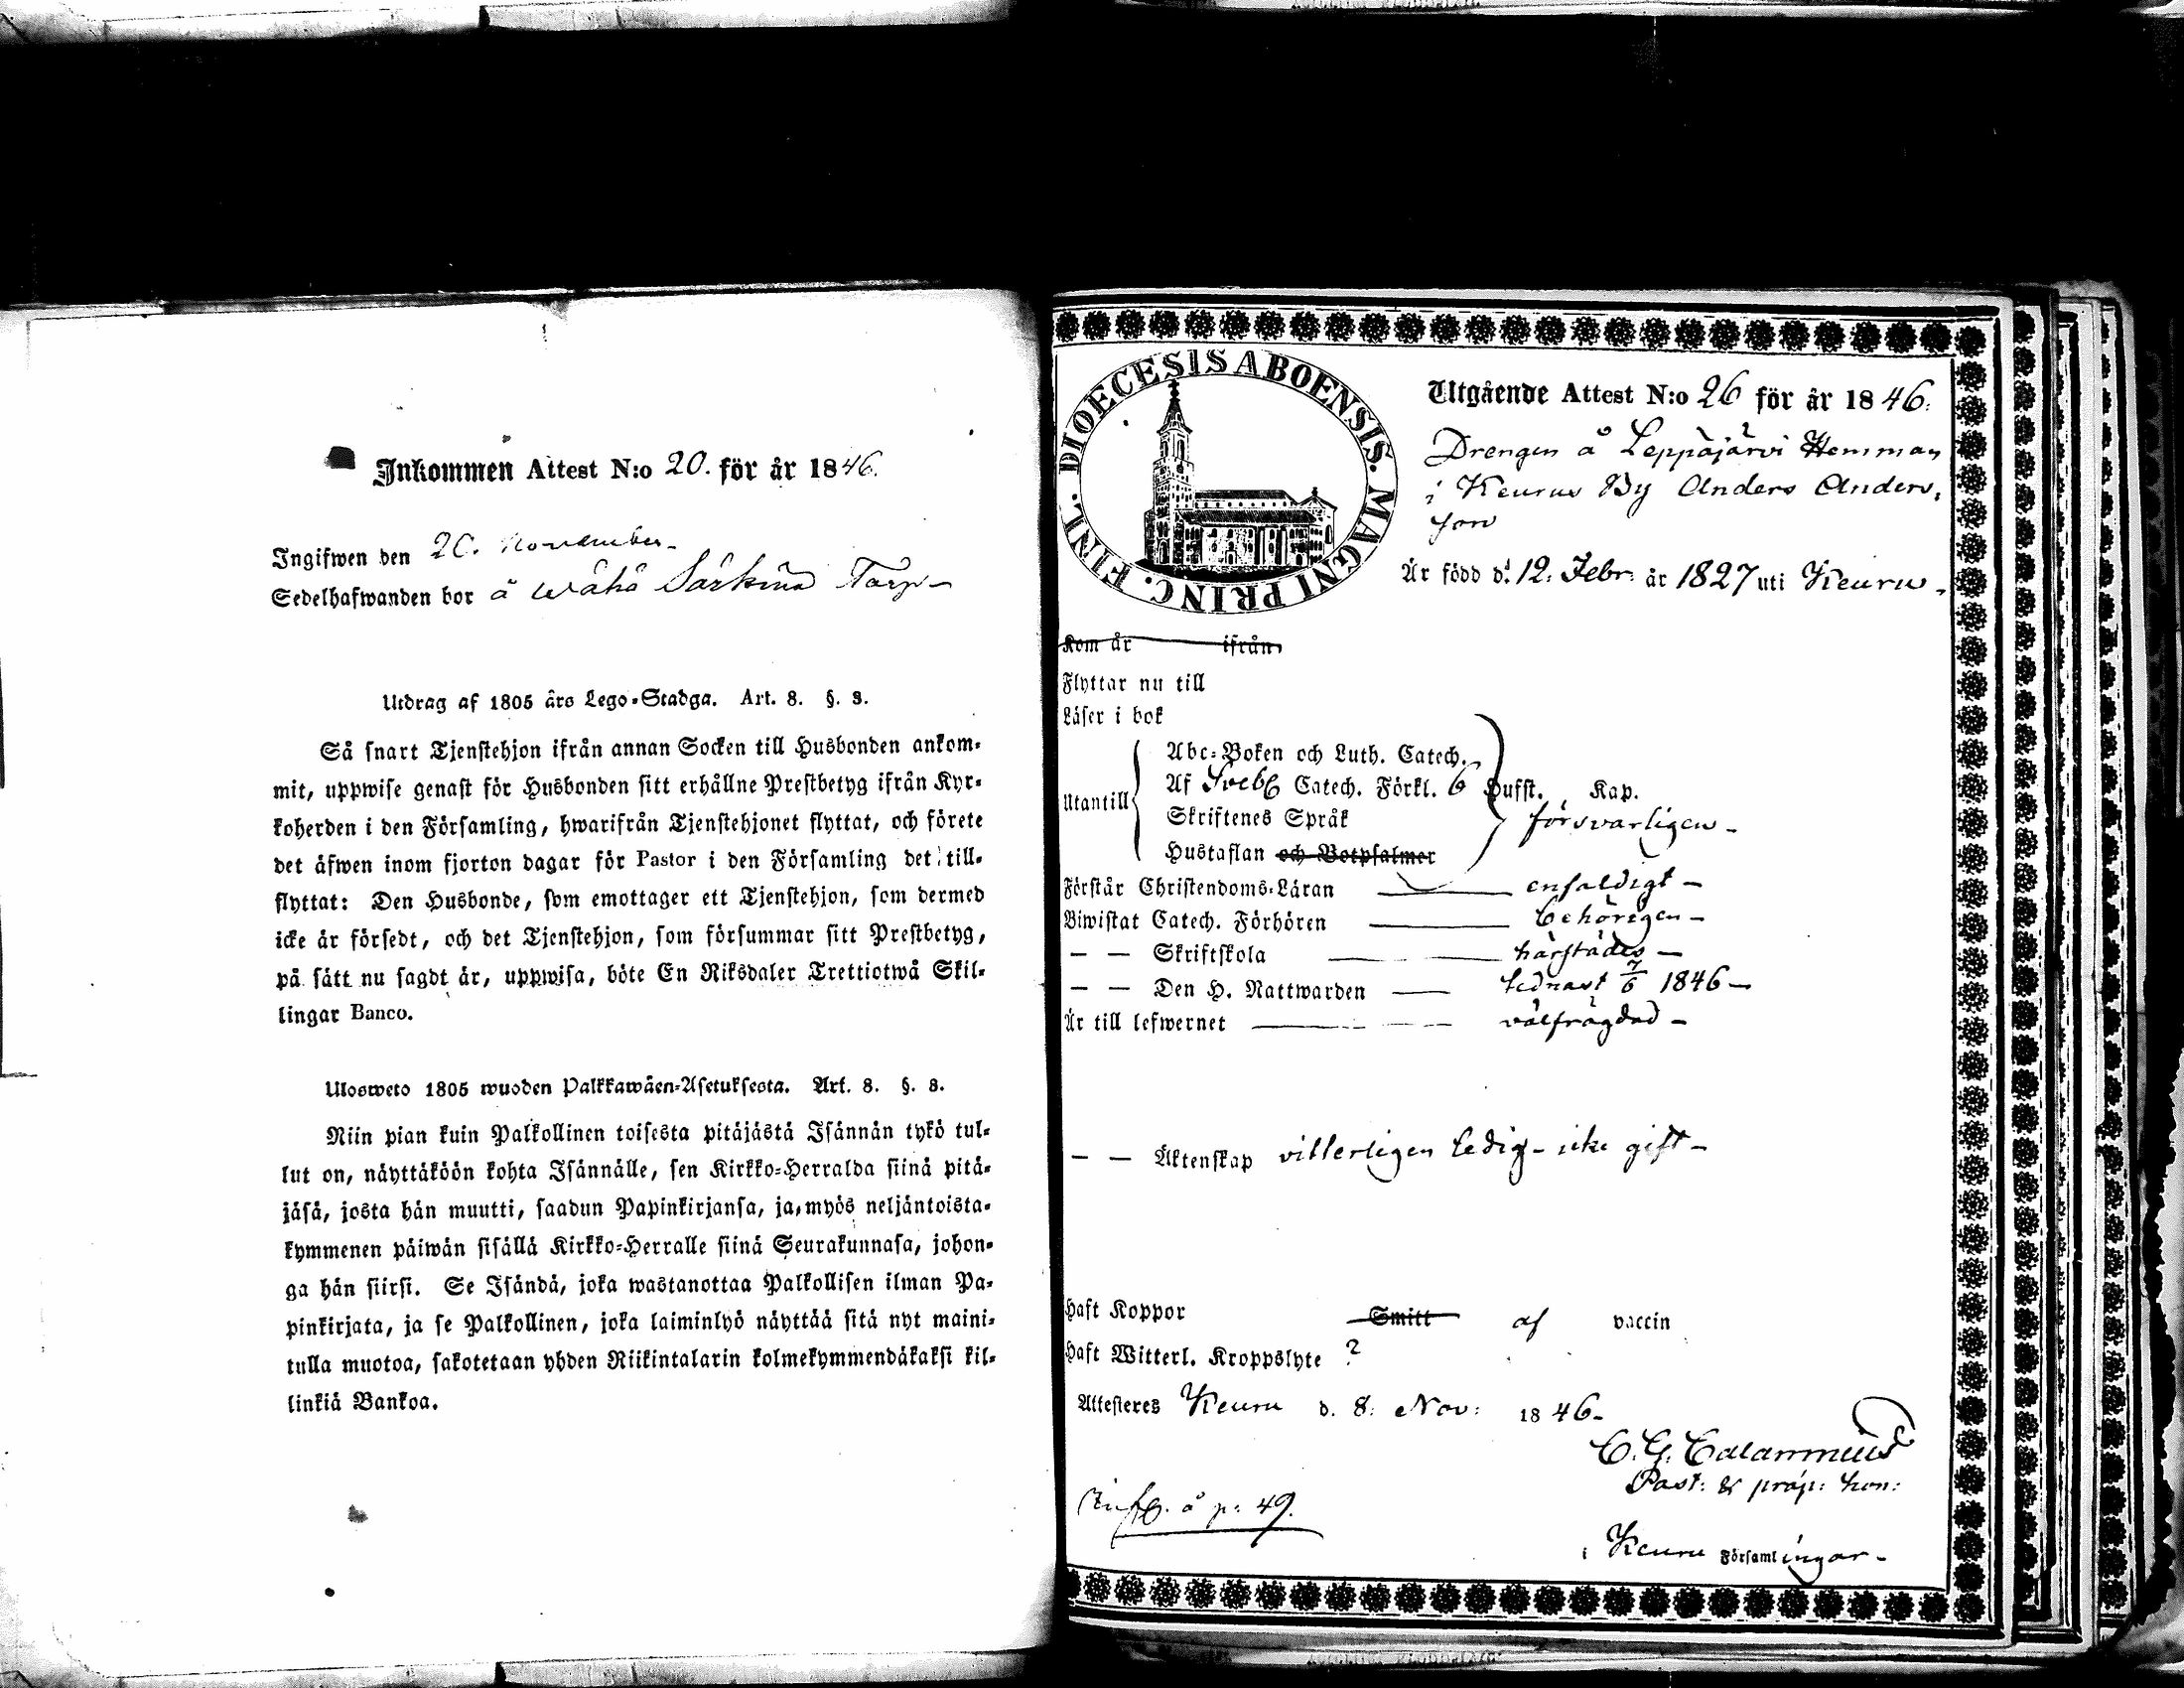 Inkommen Attest N:o 20. för år 1846.
Ingifwen den 20. November
Sedelhafwanden bor å Wähä Särkina Torp
Utdrag af 1805 års Lego-Stadga. Art. 8. §. 8.
Så snart Tjenstehjon ifrån annan Socken till Husbonden ankom-
mit, uppwise genast för Husbonden sitt erhållne Prestbetyg ifrån Kyr-
koherden i den Församling, hwarifrån Tjenstehjonet flyttat, och förete
det äfwen inom fjorton dagar för Pastor i den Församling det till-
flyttat: Den Husbonde, som emottager ett Tjenstehjon, som dermed
icke är försedt, och det Tjenstehjon, som försummar sitt Prestbetyg,
på sätt nu sagdt är, uppwisa, böte En Riksdaler Trettiotwå Skil-
lingar Banco.
Ulosweto 1805 wuoden Palkkawäen-Asetuksesta. Art. 8. §. 8.
Niin pian kuin Palkollinen toisesta pitäjästä Isännän tykö tul-
lut on, näyttäköön kohta Isännälle, sen Kirkko-Herralda siinä pitä-
jäsä, josta hän muutti, saadun Papinkirjansa, ja myös neljäntoista-
kymmenen päiwän sisällä Kirkko-Herralle siinä Seurakunnasa, johon-
ga hän siirsi. Se Isändä, joka wastanottaa Palkollisen ilman Pa-
pinkirjata, ja se Palkollinen, joka laiminlyö näyttää sitä nyt maini-
tulla muotoa, sakotetaan yhden Riikintalarin kolmekymmendäkaksi kil-
linkiä Bankoa.
DIOECESIS ABOENSIS. MAGNI PRINC. FINL.
Utgående Attest N:o 26 för år 1846.
Drengen å Leppäjärvi Hemman
i Keuruu By Anders Anders,
son
Är född d. 12. Febr. år 1827 uti Keuru
Kom år ifrån
Flyttar nu till
Läser i bok
Abc-Boken och Luth. Catech.
Utantill Af Sveb Catech. Förkl. 6 Hufst. Kap.
Skriftenes Språk försvarligen
Hustaflan och Botpsalmer
Förstår Christendoms-Läran enfaldigt
Biwistat Catech. Förhören behörigen
— — Skriftskola härstädes
— — Den H. Nattwarden sednast 7/6 1846
Är till lefwernet välfrägdad
— — Äktenskap vitterligen ledig - icke gift
Haft Koppor Smitt af vaccin
Haft Witterl. Kroppslyte ?
Attesteres Keuru d. 8: Nov: 1846
C. G. Calamnius
Past: & präp: hon:
å p: 49.
i Keuru Församlingar